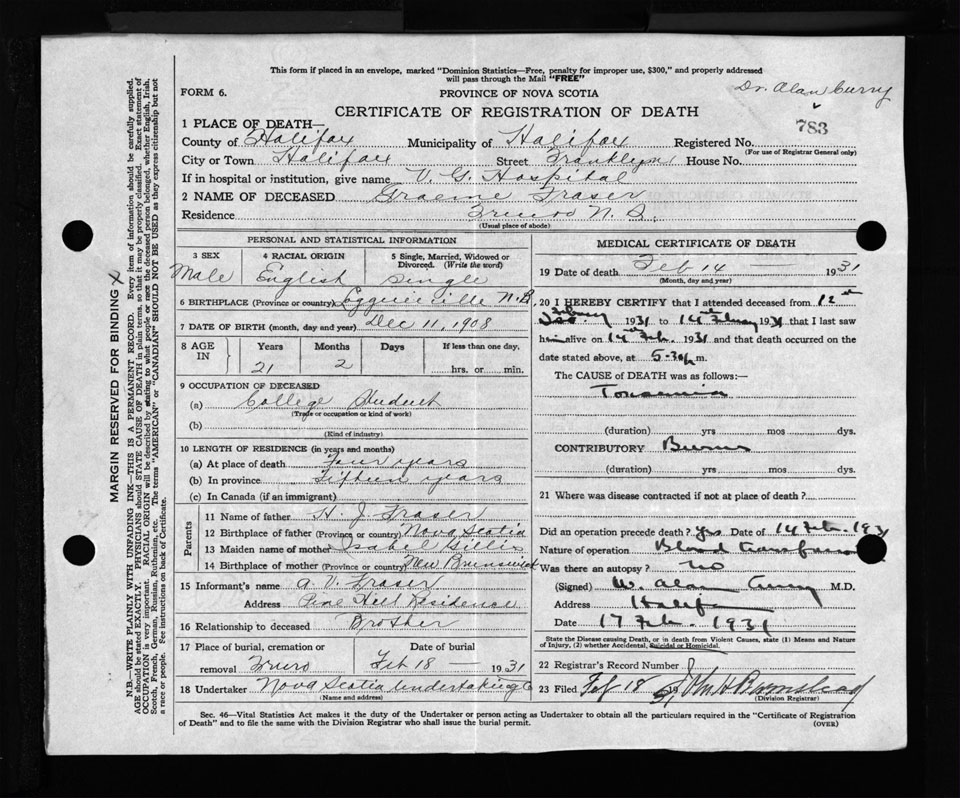 This form if placed in an envelope, marked "Dominion Statistics—Free, penalty for improper use, $300," and properly addressed
will pass through the Mail "FREE"
Dr. Alan Curry
FORM 6.
PROVINCE OF NOVA SCOTIA
CERTIFICATE OF REGISTRATION OF DEATH
783
1 PLACE OF DEATH—
County of Halifax Municipality of Halifax Registered No.
(For use of Registrar General only)
City or Town Halifax Street Franklyn House No.
If in hospital or institution, give name V. G. Hospital
2 NAME OF DECEASED Graeme Fraser
Residence Truro N. S.
(Usual place of abode)
PERSONAL AND STATISTICAL INFORMATION
3 SEX 4 RACIAL ORIGIN 5 Single, Married, Widowed or
Divorced. (Write the word)
Male English Single
6 BIRTHPLACE (Province or country) N.B.
7 DATE OF BIRTH (month, day and year) Dec 11, 1908
8 AGE IN Years Months Days If less than one day,
21 2 hrs. or min.
9 OCCUPATION OF DECEASED
(a) College Student
(Trade or occupation or kind of work)
(b)
(Kind of industry)
10 LENGTH OF RESIDENCE (in years and months)
(a) At place of death Four years
(b) In province Fifteen years
(c) In Canada (if an immigrant)
Parents
11 Name of father H. J. Fraser
12 Birthplace of father (Province or country) Nova Scotia
13 Maiden name of mother Isabel Gillis
14 Birthplace of mother (Province or country) New Brunswick
15 Informant's name A. V. Fraser
Address Pine Hill Residence
16 Relationship to deceased Brother
17 Place of burial, cremation or Date of burial
removal Truro Feb 18 — 1931
18 Undertaker Nova Scotia Undertaking Co
(Name and address)
MEDICAL CERTIFICATE OF DEATH
19 Date of death Feb 14 — 1931
(Month, day and year)
20 I HEREBY CERTIFY that I attended deceased from 12th
1931 to 14th 1931 that I last saw
him alive on 14th Feb. 1931 and that death occurred on the
date stated above, at 5-30 p m.
The CAUSE OF DEATH was as follows:—
Toxaemia
(duration) yrs mos dys.
CONTRIBUTORY Burns
(duration) yrs mos dys.
21 Where was disease contracted if not at place of death?
Did an operation precede death? Yes Date of 14 Feb. 1931
Nature of operation Blood transfusion
Was there an autopsy? no
(Signed) W. Alan Curry M.D.
Address Halifax
Date 17 Feb. 1931
State the Disease causing Death, or in death from Violent Causes, state (1) Means and Nature
of Injury, (2) whether Accidental, Suicidal or Homicidal.
22 Registrar's Record Number
23 Filed Feb 18 1931
(Division Registrar)
Sec. 46—Vital Statistics Act makes it the duty of the Undertaker or person acting as Undertaker to obtain all the particulars required in the "Certificate of Registration
of Death" and to file the same with the Division Registrar who shall issue the burial permit. (OVER)
MARGIN RESERVED FOR BINDING X
N.B.—WRITE PLAINLY WITH UNFADING INK—THIS IS A PERMANENT RECORD. Every item of information should be carefully supplied.
AGE should be stated EXACTLY. PHYSICIANS should STATE CAUSE OF DEATH in plain terms, so that it may be properly classified. Exact statement of
OCCUPATION is very important. RACIAL ORIGIN will be described by stating to what people or race the deceased person belonged, whether English, Irish,
Scotch, French, German, Russian, Ruthenian, etc. The terms "AMERICAN" or "CANADIAN" SHOULD NOT BE USED as they express citizenship but not
a race or people. Fee instructions on back of Certificate.